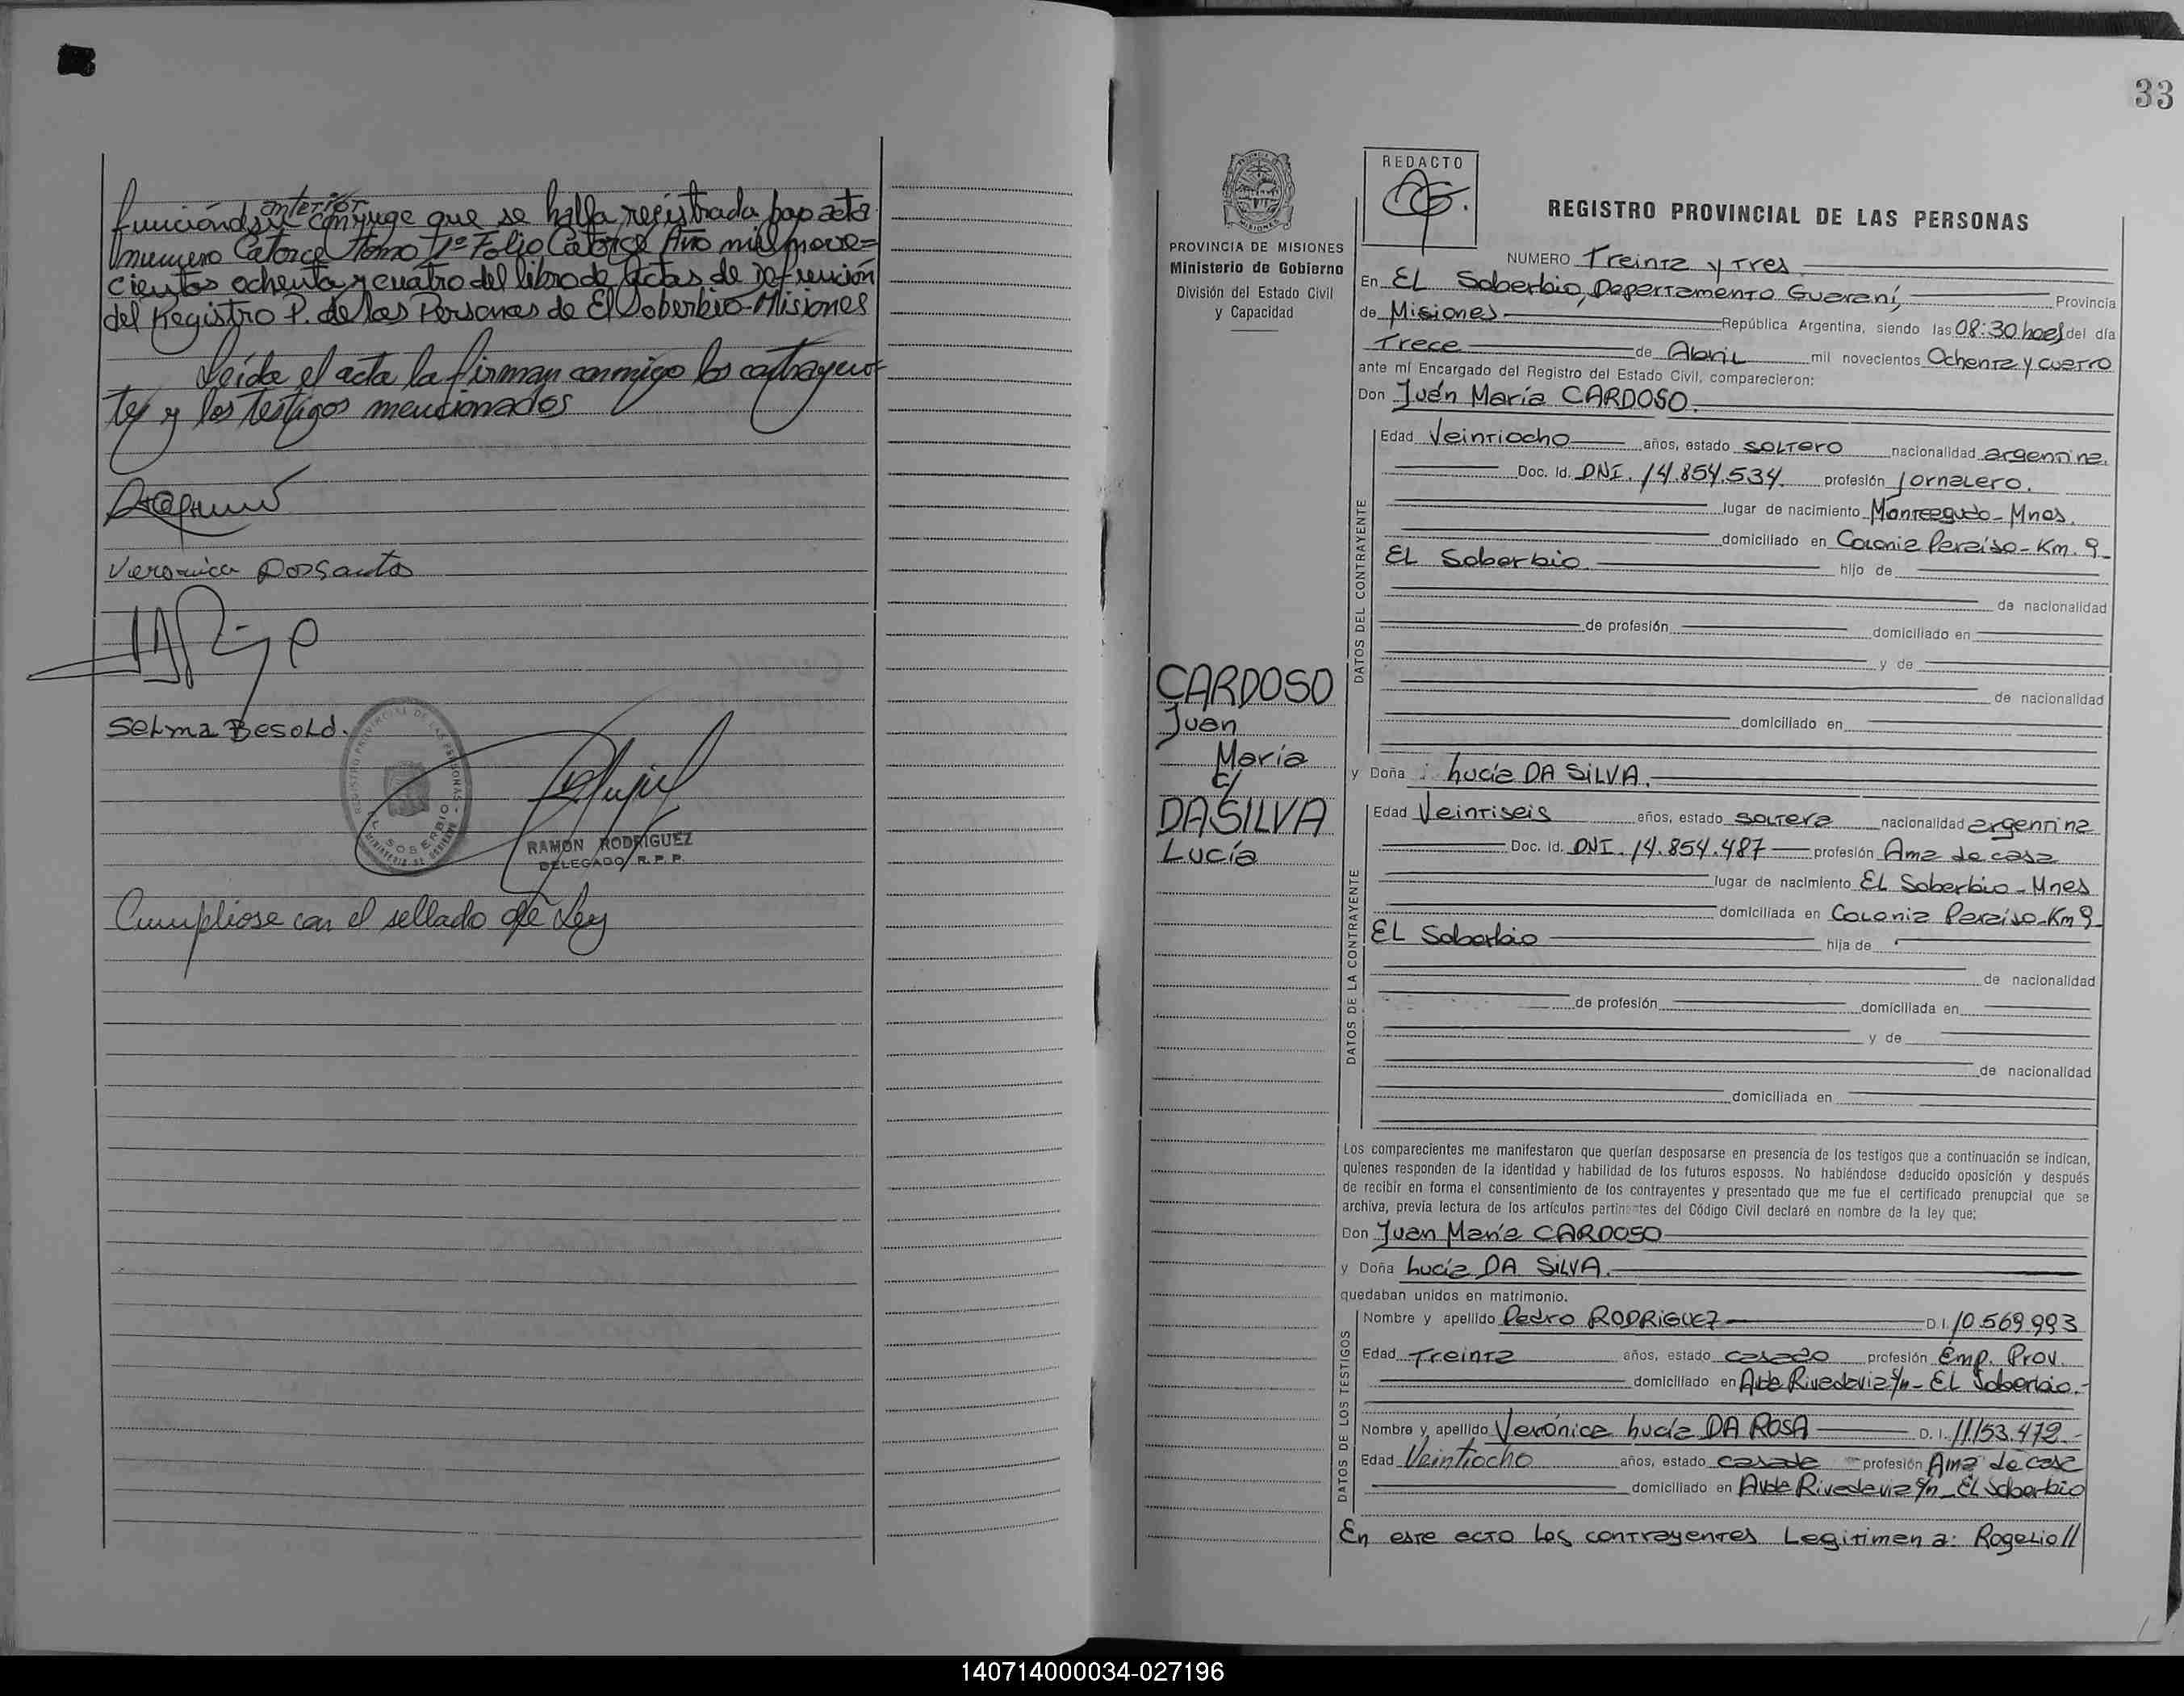 anterior
funcion de su conyuge que se halla registrada bajo acta
numero Catorce Tomo 1º Folio Catorce Año mil nove=
cientos ochenta y cuatro del libro de Actas de Defunción
del Registro P. de las Personas de El Soberbio-Misiones
Leída el acta la firman conmigo los contrayen-
tes y los testigos mencionados
Veronica Dos Santos
Selma Besold.
REGISTRO PROVINCIAL DE LAS PERSONAS
EL SOBERBIO
RAMON RODRIGUEZ
DELEGADO R. P. P.
Cumpliose con el sellado de Ley
33
PROVINCIA DE MISIONES
Ministerio de Gobierno
División del Estado Civil
y Capacidad
REDACTO
REGISTRO PROVINCIAL DE LAS PERSONAS
NUMERO Treinta y tres
En EL Soberbio, Departamento Guaraní, Provincia
de Misiones República Argentina, siendo las 08:30 horas del día
Trece de Abril mil novecientos Ochenta y cuatro
ante mí Encargado del Registro del Estado Civil, comparecieron:
Don Juán María CARDOSO.
DATOS DEL CONTRAYENTE
Edad Veintiocho años, estado soltero nacionalidad argentina.
Doc. Id. DNI. 14.854.534. profesión Jornalero.
lugar de nacimiento Monteagudo - Mnes.
domiciliado en Colonia Paraíso - Km. 9
EL Soberbio. hijo de
de nacionalidad
de profesión domiciliado en
y de
de nacionalidad
domiciliado en
CARDOSO
Juan
María
c/
DA SILVA
Lucía
y Doña Lucía DA SILVA.
DATOS DE LA CONTRAYENTE
Edad Veintiseis años, estado soltera nacionalidad argentina
Doc. Id. DNI. 14.854.487 profesión Ama de casa
lugar de nacimiento EL Soberbio - Mnes
domiciliada en Colonia Paraíso - Km 9
EL Soberbio hija de
de nacionalidad
de profesión domiciliada en
y de
de nacionalidad
domiciliada en
Los comparecientes me manifestaron que querían desposarse en presencia de los testigos que a continuación se indican,
quienes responden de la identidad y habilidad de los futuros esposos. No habiéndose deducido oposición y después
de recibir en forma el consentimiento de los contrayentes y presentado que me fue el certificado prenupcial que se
archiva, previa lectura de los artículos pertinentes del Código Civil declaré en nombre de la ley que;
Don Juan María CARDOSO
y Doña Lucía DA SILVA.
quedaban unidos en matrimonio.
DATOS DE LOS TESTIGOS
Nombre y apellido Pedro RODRIGUEZ D.I. 10.569.993
Edad Treinta años, estado casado profesión Emp. Prov.
domiciliado en Avda Rivadavia s/n - EL Soberbio.-
Nombre y apellido Verónica Lucía DA ROSA D. I. 11.153.472.-
Edad Veintiocho años, estado casada profesión Ama de casa
domiciliado en Avda Rivadavia s/n - EL Soberbio
En este acto los contrayentes Legitiman a: Rogelio//
140714000034-027196